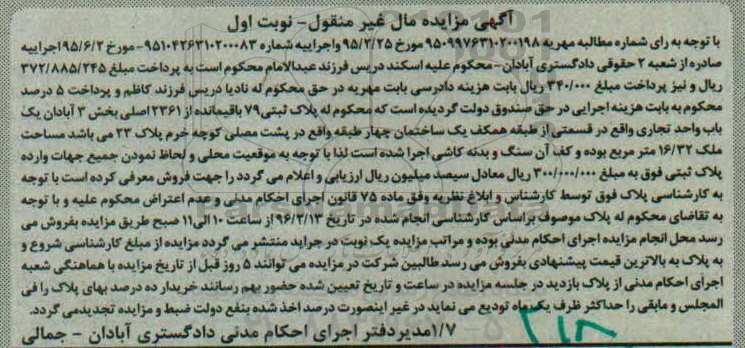 آگهی مزایده مال غیر منقول - نوبت اول
با توجه به رای شماره مطالبه مهریه ۹۵۰۹۹۷۶۳۱۰۲۰۰۱۹۸ مورخ ۹۵/۲/۲۵ واجراییه شماره ۹۵۱۰۴۲۶۳۱۰۲۰۰۰۸۳-مورخ ۹۵/۶/۲ اجراییه
صادره از شعبه ۲ حقوقی دادگستری آبادان - محکوم علیه اسکند دریس فرزند عبدالامام محکوم است به پرداخت مبلغ ۳۷۲/۸۸۵/۲۴۵
ریال و نیز پرداخت مبلغ ۳۴۰/۰۰۰ ریال بابت هزینه دادرسی بابت مهریه در حق محکوم له نادیا دریس فرزند کاظم و پرداخت ۵ درصد
محکوم به بابت هزینه اجرایی در حق صندوق دولت گردیده است که محکوم له پلاک ثبتی ۷۹ باقیمانده از ۲۳۶۱ اصلی بخش ۳ آبادان یک
باب واحد تجاری واقع در قسمتی از طبقه همکف یک ساختمان چهار طبقه واقع در پشت مصلی کوچه خرم پلاک ۲۳ می باشد مساحت
ملک ۱۶/۳۲ متر مربع بوده و کف آن سنگ و بدنه کاشی اجرا شده است لذا با توجه به موقعیت محلی و لحاظ نمودن جمیع جهات وارده
پلاک ثبتی فوق به مبلغ ۳۰۰/۰۰۰/۰۰۰ ریال معادل سیصد میلیون ریال ارزیابی و اعلام می گردد را جهت فروش معرفی کرده است با توجه
به کارشناسی پلاک فوق توسط کارشناس و ابلاغ نظریه وفق ماده ۷۵ قانون اجرای احکام مدنی و عدم اعتراض محکوم علیه و با توجه
به تقاضای محکوم له پلاک موصوف براساس کارشناسی انجام شده در تاریخ ۹۶/۳/۱۳ از ساعت ۱۰ الی ۱۱ صبح طریق مزایده بفروش می
رسد محل انجام مزایده اجرای احکام مدنی بوده و مراتب مزایده یک نوبت در جراید منتشر می گردد مزایده از مبلغ کارشناسی شروع و
به پلاک به بالاترین قیمت پیشنهادی بفروش می رسد طالبین شرکت در مزایده می توانند ۵ روز قبل از تاریخ مزایده با هماهنگی شعبه
اجرای احکام مدنی از پلاک بازدید در جلسه مزایده در ساعت و تاریخ تعیین شده حضور بهم رسانند خریدار ده درصد بهای پلاک را فی
المجلس و مابقی را حداکثر ظرف یک ماه تودیع می نماید در غیر اینصورت درصد اخذ شده بنفع دولت ضبط و مزایده تجدید می گردد.
۱/۷ مدیر دفتر اجرای احکام مدنی دادگستری آبادان - جمالی